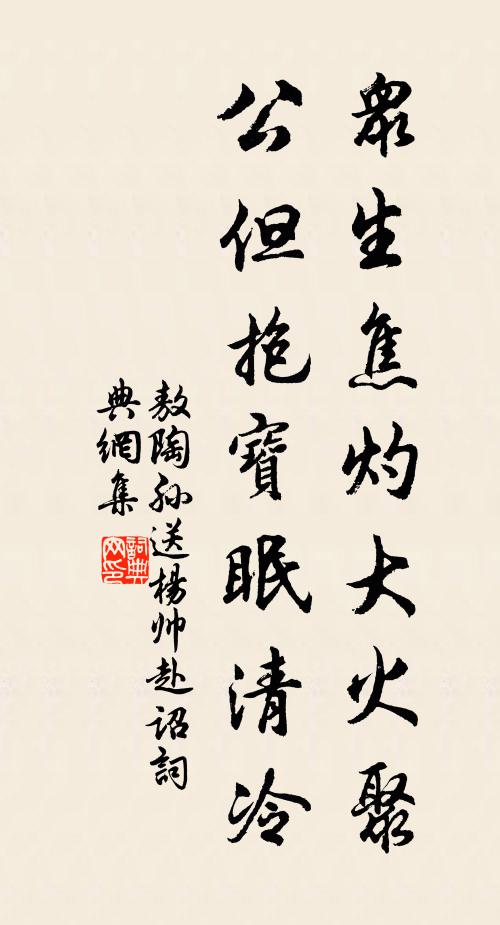 眾生焦灼大火聚
公但抱寶眠清冷
敖陶孫送楊帅赴詔詞
典網集
詞典
网印